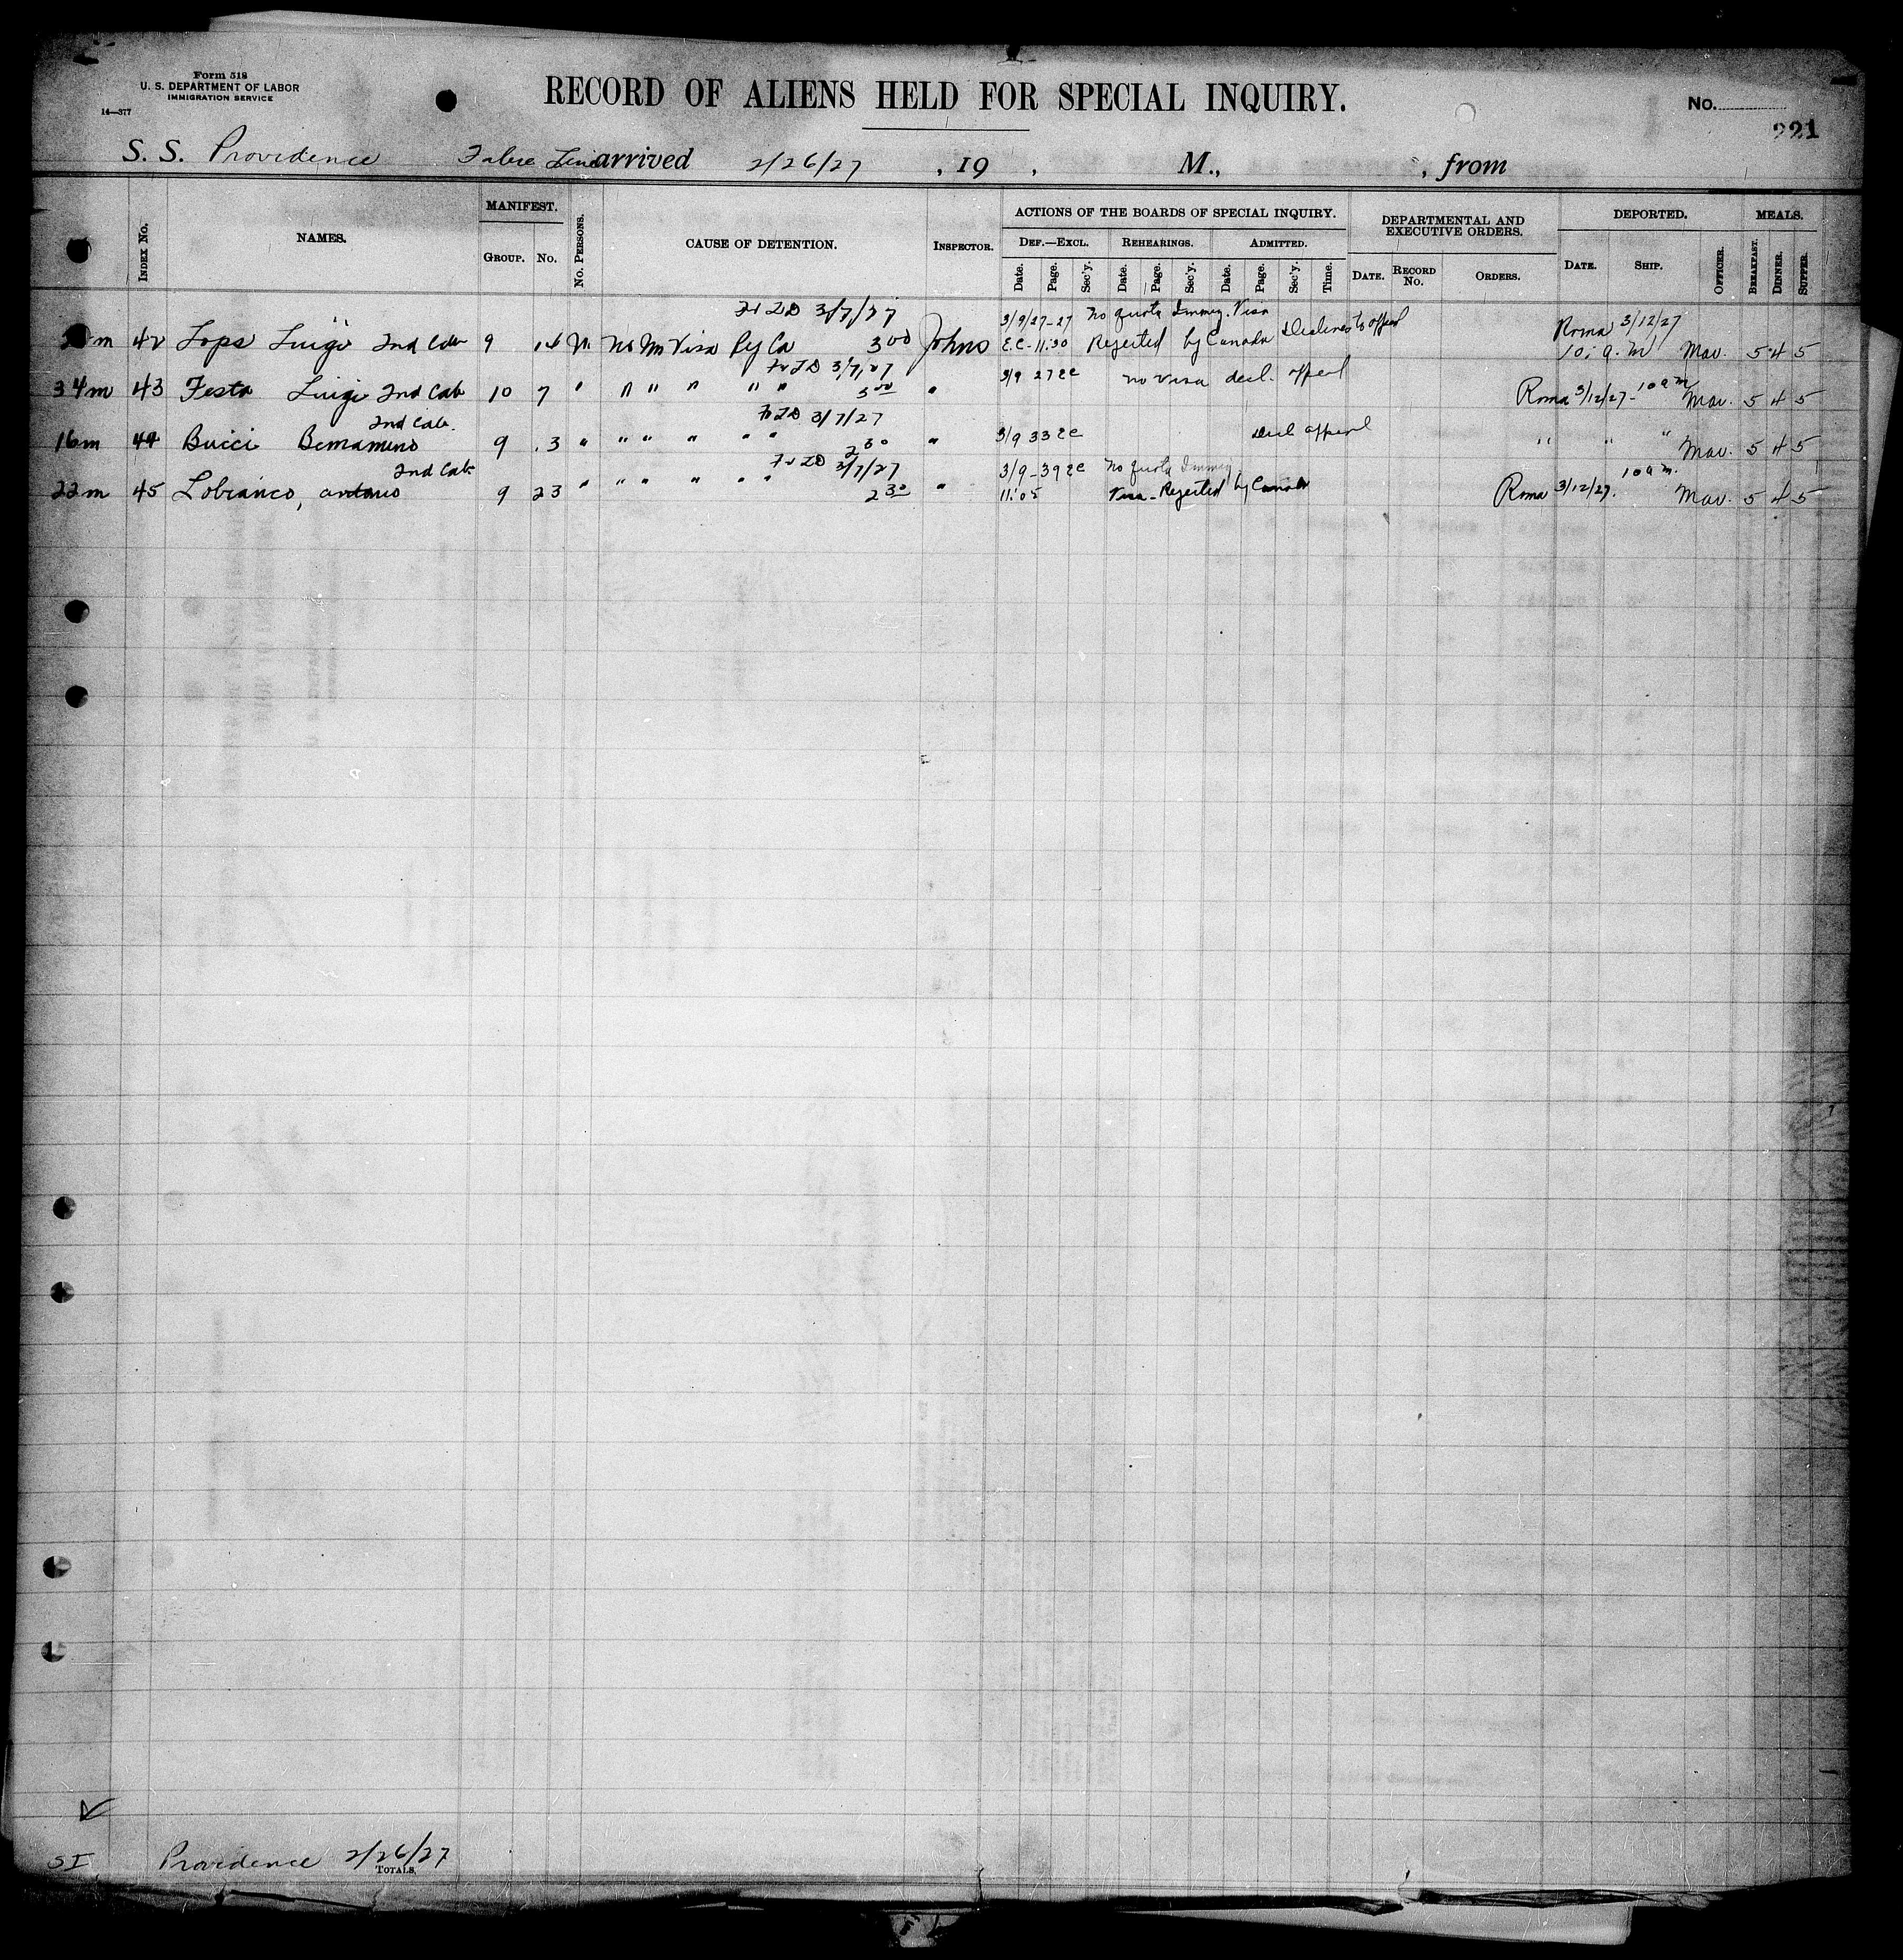 Form 518
U. S. DEPARTMENT OF LABOR
IMMIGRATION SERVICE
14—377
RECORD OF ALIENS HELD FOR SPECIAL INQUIRY.
No.
221
S. S. Providence Fabre Line arrived 2/26/27 , 19 , M., , from
INDEX No. NAMES. MANIFEST. GROUP. No. No. PERSONS. CAUSE OF DETENTION. INSPECTOR.
ACTIONS OF THE BOARDS OF SPECIAL INQUIRY.
DEF.—EXCL. REHEARINGS. ADMITTED.
Date. Page. Sec'y. Date. Page. Sec'y. Date. Page. Sec'y. Time.
DEPARTMENTAL AND EXECUTIVE ORDERS.
DATE. RECORD No. ORDERS.
DEPORTED.
DATE. SHIP. OFFICER.
MEALS.
BREAKFAST. DINNER. SUPPER.
3/7/27 3/9/27-27 no quota Immig. Visa Roma 3/12/27
m 42 Lops Luigi 2nd Cab 9 14 Visa 3 00 Johns E.C-11:30 Rejected by Canada Declines to appeal 10 a. m Mav. 5 4 5
3/7/27
34m 43 Festa Luigi 2nd Cab 10 7 " " " " " " 5 00 " 3/9 27 EC no visa decl. appeal Roma 3/12/27- 10 am Mav. 5 4 5
2nd Cab. 3/7/27
16m 44 Bucci 9 3 " " " " " " 2 30 " 3/9 33 EC decl appeal " " " Mav. 5 4 5
2nd Cab 3/7/27 3/9-39 EC no quota Immig. 10 am.
22m 45 Lobianco, antonio 9 23 " " " " " " 2 30 " 11:05 Visa-Rejected by Canada Roma 3/12/27. Mav. 5 4 5
SI Providence 2/26/27
TOTALS.